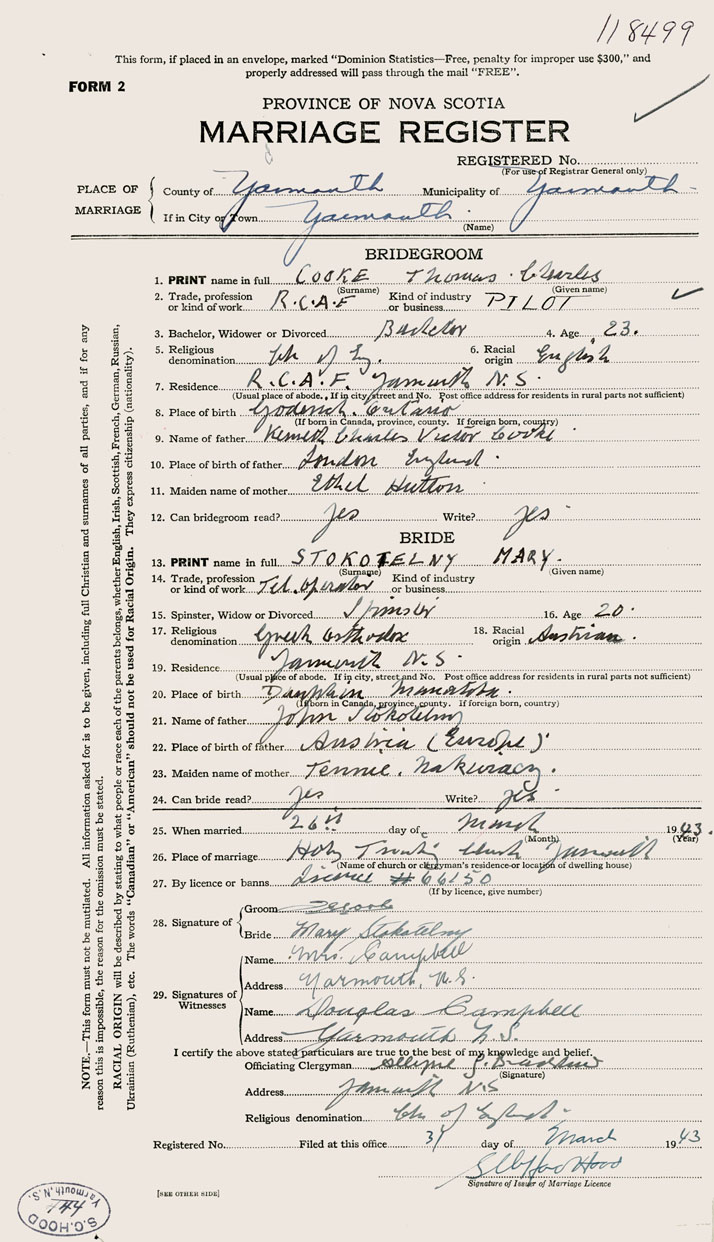 118499
This form, if placed in an envelope, marked "Dominion Statistics—Free, penalty for improper use $300," and
properly addressed will pass through the mail "FREE".
FORM 2
PROVINCE OF NOVA SCOTIA
MARRIAGE REGISTER
REGISTERED No.
(For use of Registrar General only)
PLACE OF MARRIAGE
County of Yarmouth Municipality of Yarmouth
If in City or Town Yarmouth
(Name)
BRIDEGROOM
1. PRINT name in full COOKE Thomas Charles
(Surname) (Given name)
2. Trade, profession or kind of work R.C.A.F Kind of industry or business PILOT
3. Bachelor, Widower or Divorced Bachelor 4. Age 23.
5. Religious denomination Ch of Eng. 6. Racial origin English
7. Residence R.C.A.F. Yarmouth N.S.
(Usual place of abode. If in city, street and No. Post office address for residents in rural parts not sufficient)
8. Place of birth Goderich. Ontario
(If born in Canada, province, county. If foreign born, country)
9. Name of father Kenneth Charles Victor Cooke
10. Place of birth of father London England
11. Maiden name of mother Ethel Hutton
12. Can bridegroom read? yes Write? yes
BRIDE
13. PRINT name in full STOKOTELNY MARY.
(Surname) (Given name)
14. Trade, profession or kind of work Tel. Operator Kind of industry or business
15. Spinster, Widow or Divorced Spinster 16. Age 20.
17. Religious denomination Greek Orthodox 18. Racial origin Austrian.
19. Residence Yarmouth N.S.
(Usual place of abode. If in city, street and No. Post office address for residents in rural parts not sufficient)
20. Place of birth Dauphin Manitoba.
(If born in Canada, province, county. If foreign born, country)
21. Name of father John Stokotelny
22. Place of birth of father Austria (Europe)
23. Maiden name of mother Tennie.
24. Can bride read? yes Write? yes
25. When married 26th day of March 1943.
(Month) (Year)
26. Place of marriage Holy Trinity Church Yarmouth
(Name of church or clergyman's residence or location of dwelling house)
27. By licence or banns licence # 66150
(If by licence, give number)
28. Signature of
Groom
Bride Mary Stokotelny
29. Signatures of Witnesses
Name Mrs. Campbell
Address Yarmouth, N.S.
Name Douglas Campbell
Address Yarmouth N.S.
I certify the above stated particulars are true to the best of my knowledge and belief.
Officiating Clergyman
(Signature)
Address Yarmouth N.S
Religious denomination Ch of England
Registered No. Filed at this office 31 day of March 1943
Hood
Signature of Issuer of Marriage Licence
[SEE OTHER SIDE]
S.C. HOOD
Yarmouth, N.S.
NOTE.—This form must not be mutilated. All information asked for is to be given, including full Christian and surnames of all parties, and if for any
reason this is impossible, the reason for the omission must be stated.
RACIAL ORIGIN will be described by stating to what people or race each of the parents belongs, whether English, Irish, Scottish, French, German, Russian,
Ukrainian (Ruthenian), etc. The words "Canadian" or "American" should not be used for Racial Origin. They express citizenship (nationality).